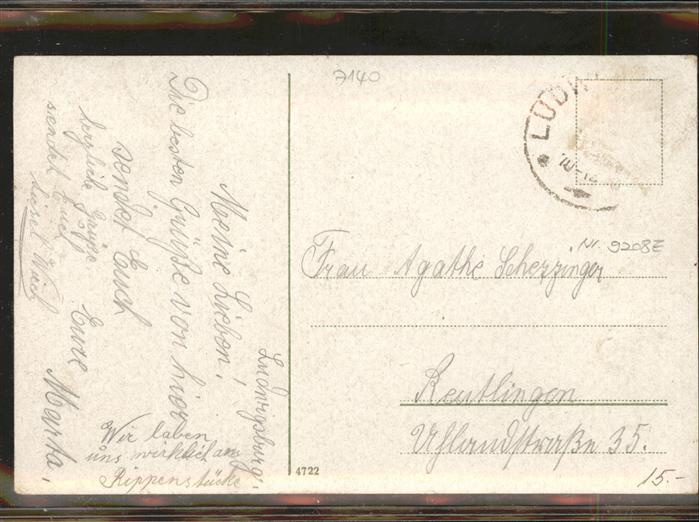 7140
LUDW
10-12
Ludwigsburg,
Meine Lieben!
Die besten Grüße von hier
sendet Euch
Eure Marta,
herzliche Grüße
sendet Euch
Wir laben
uns wirklich an
Rippenstücke
Nr. 9208E
Frau Agathe Scherzinger
Reutlingen
Uhlandstraße 35.
4722
15.-